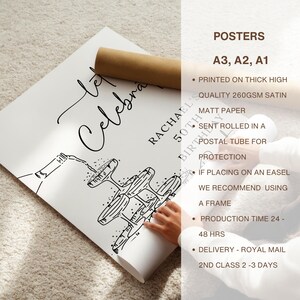 POSTERS
A3, A2, A1
• PRINTED ON THICK HIGH
QUALITY 260GSM SATIN
MATT PAPER
• SENT ROLLED IN A
POSTAL TUBE FOR
PROTECTION
• IF PLACING ON AN EASEL
WE RECOMMEND USING
A FRAME
• PRODUCTION TIME 24 -
48 HRS
• DELIVERY - ROYAL MAIL
2ND CLASS 2 -3 DAYS
Celebra
RACHAEL'S
50TH
BIRTHDAY